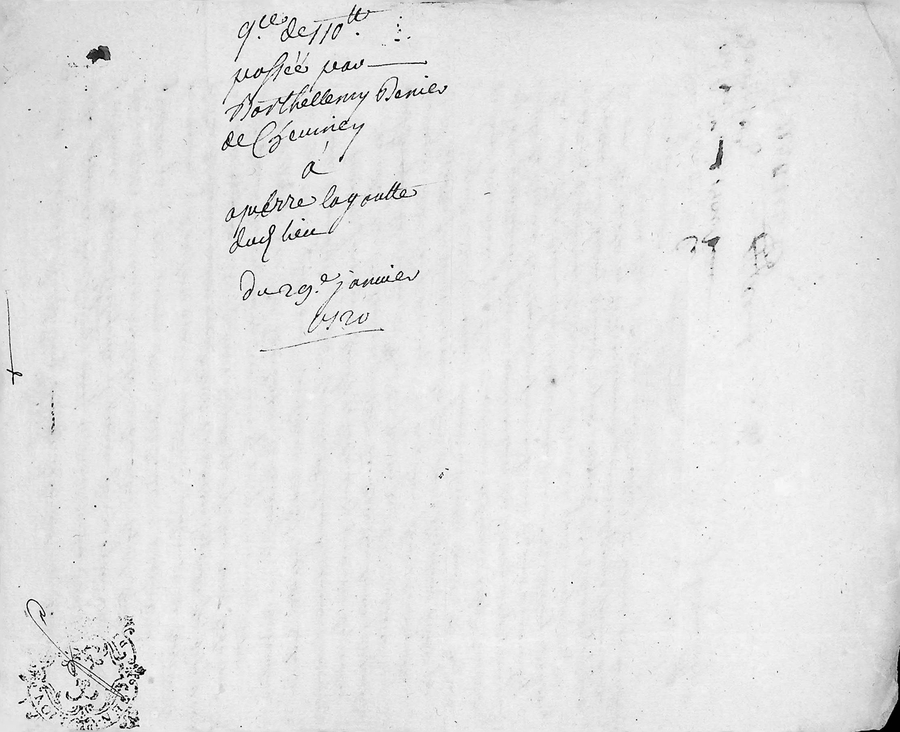 q.ce de 110 tt
passée par
Barthellemy Benier
de Cheviney
à
a pierre lagoutte
dud lieu
du 29.e janvier
1720